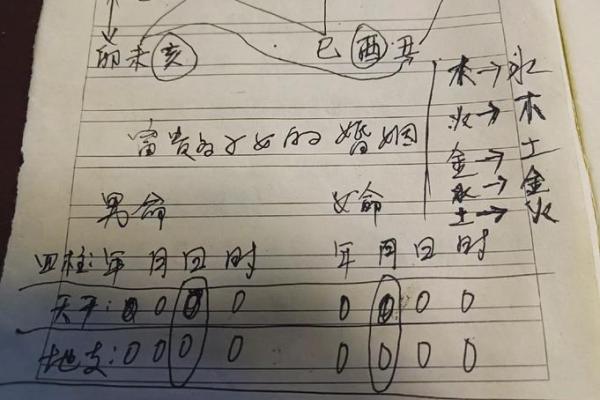 卯未亥 巳酉丑
木→水
火→木
金→土
水→金
土→火
富贵的子女的婚姻
男命 女命
四柱:年月日时 年月日时
天干:0 0 0 0 0 0 0 0
地支:0 0 0 0 0 0 0 0